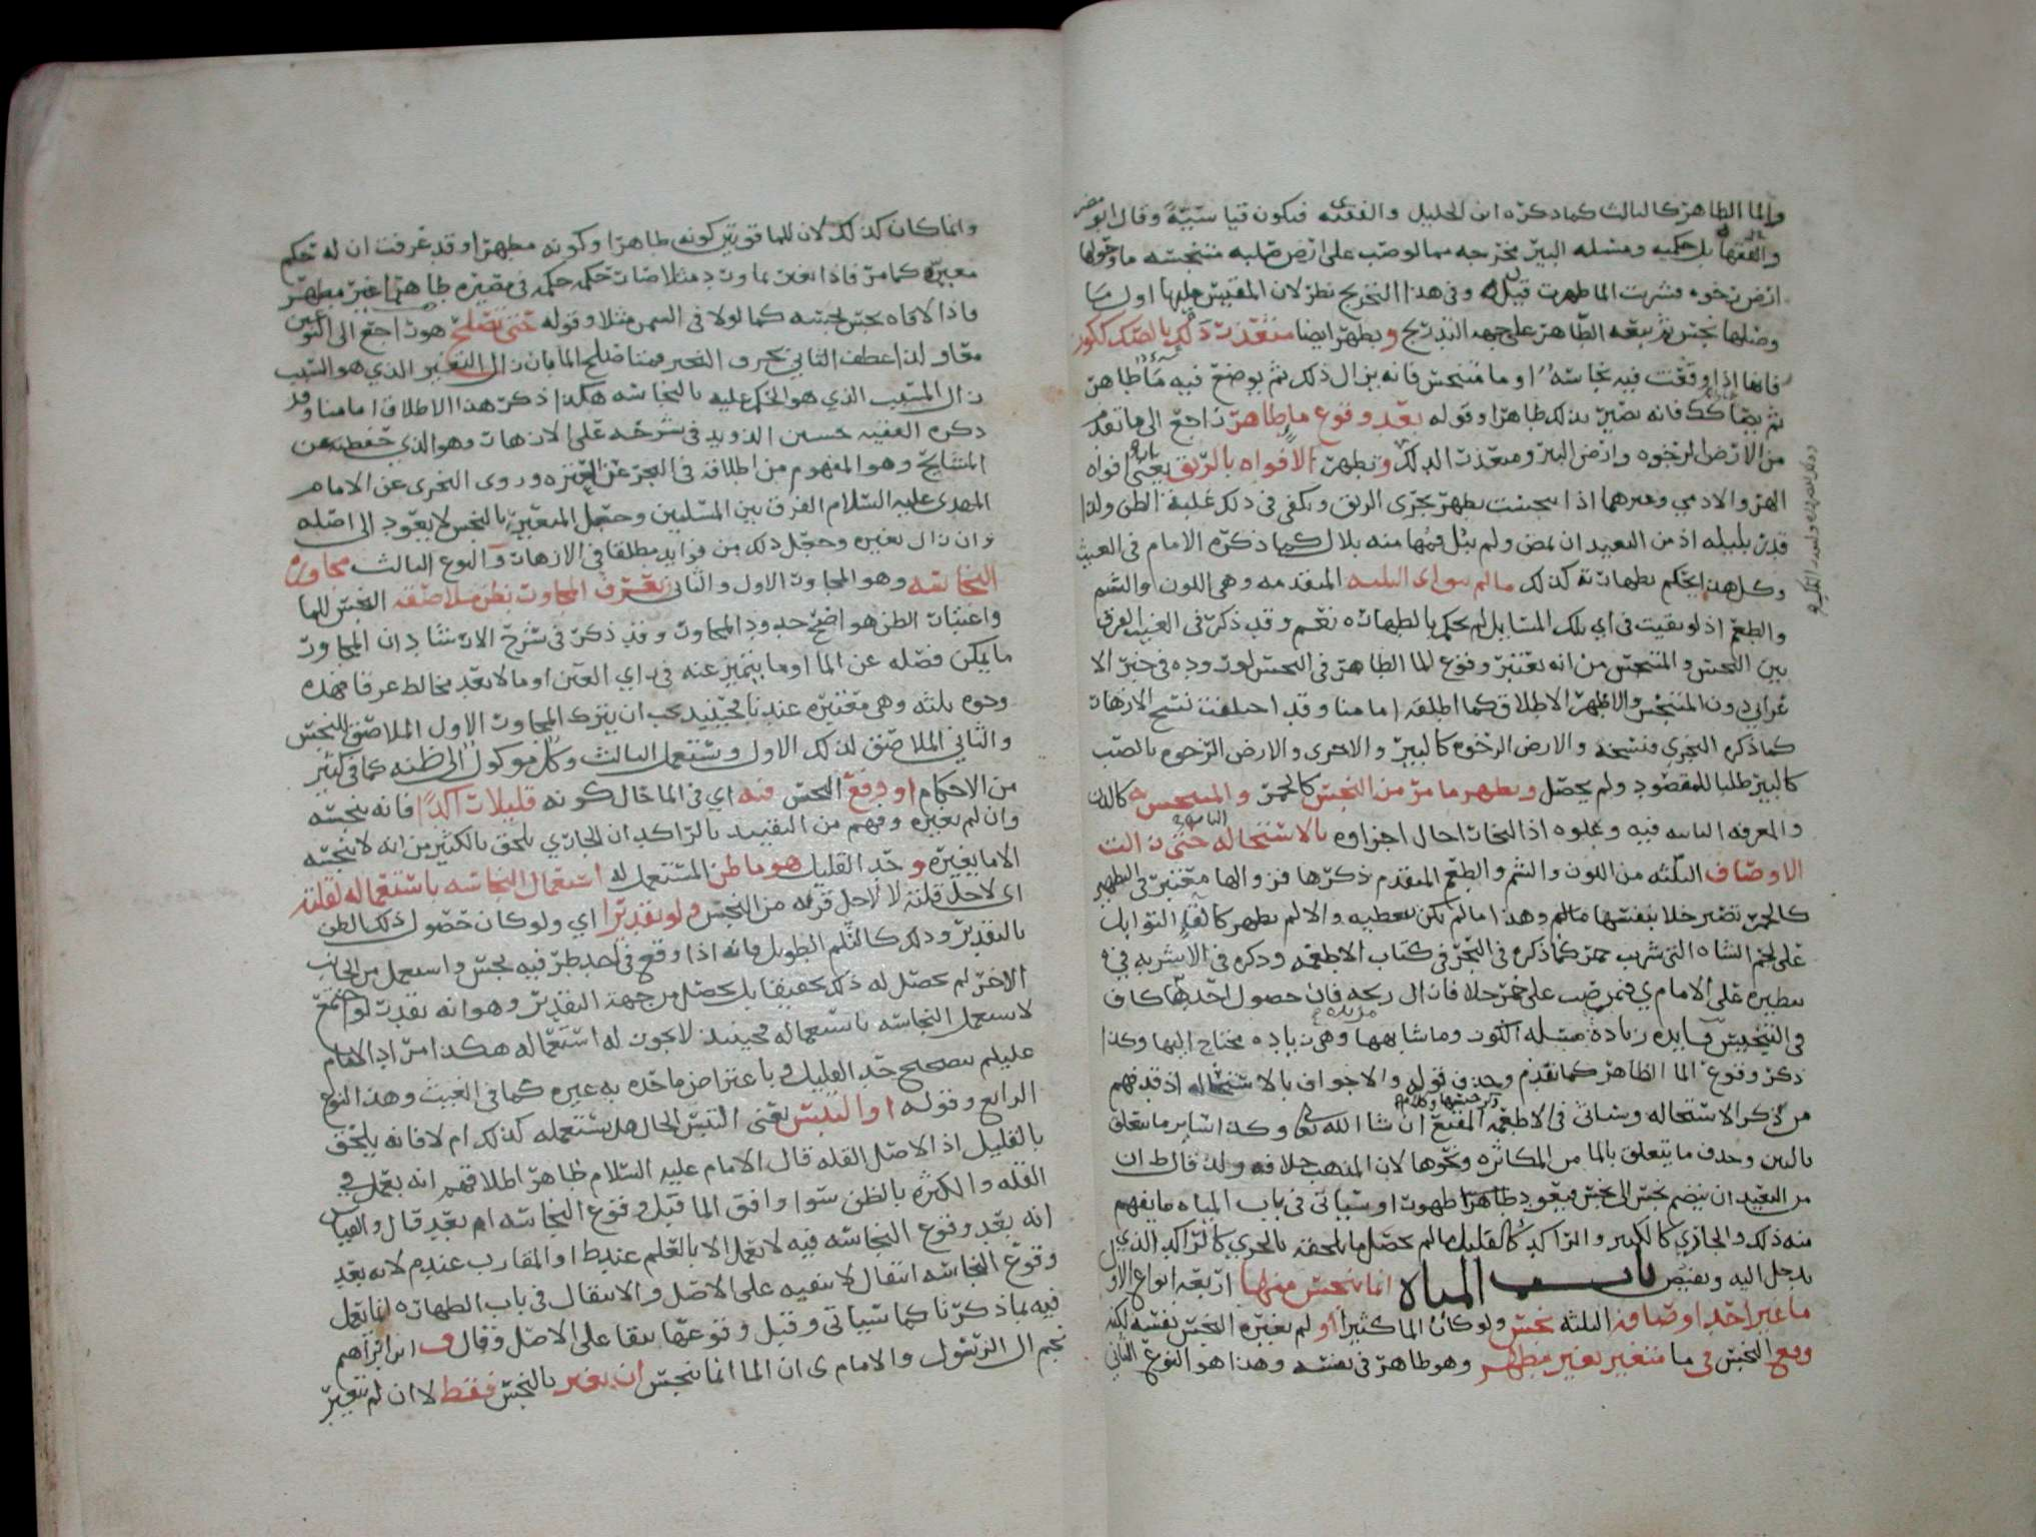 والما الطاهر كالثالث كما ذكره ابن الخليل والفقيه فيكون قياسيته وقال ابو مضر
والفقها بل حكميه ومسله البير مخرجه مما لو صب على ارض صلبه متنجسه ما وحولها
ارض رخوه فشربت الما طهرت قيل وفى هذا التخريج نظر لان المقيس عليها اول ما
وصلها نجس ثم يتبعه الطاهر على جهه التدريج ويطهر ايضا متعذر ذلك بالصك ككوز
فانها اذا وقعت فيه نجاسه او ما متنجس فانه يزال ذلك ثم يوضع فيه ما طاهر
ثم يصاكك فانه يصير بذلك طاهرا وقوله بعد وقوع ما طاهر راجع الى ما تقدم
من الارض الرخوه وارض البير ومتعذر الدلك وتطهر الافواه بالريق يعنى افواه
الهر والادمي وغيرهما اذا تنجست يطهر بجرى الريق ويكفى في ذلك غلبة الظن ولذا
قدر بليله اذ من البعيد ان تمضى ولم يبل فمها منه بلال كما ذكره الامام فى الغيث
وكل هذا يحكم بطهارته كذلك ما لم يبق اى الثلثه المتقدمه وهى اللون والشم
والطعم اذ لو بقيت فى اي تلك المسايل لم يحكم بالطهاره نعم وقد ذكر فى الغيث الفرق
بين النجس والمتنجس من انه يعتبر وقوع الما الطاهر فى النجس لوروده فى خبر الا
عرابي دون المتنجس والاظهر الاطلاق كما اطلقه امامنا وقد اختلفت نسخ الازهار
كما ذكره النجري فنسخه والارض الرخوه كالبير والاخرى والارض الرخوه بالصب
كالبير طلبا للمقصود ولم يحصل ويطهر ما مر من النجس كالخمر والمتنجس كاللبن
والمعرفه فيه وعلوه اذ البخار احال اجزاوه بالاستحاله حتى زالت
الاوصاف الثلثه من اللون والشم والطعم المتقدم ذكرها فزوالها معتبر فى التطهير
كالخمر تصير خلا بنفسها ما لم وهذا ما لم تكن متغطيه والا لم يطهر كالقا التوابل
على لحم الشاه التى شربت خمر كما ذكره فى البحر فى كتاب الاطعمه وذكره فى الاشربه في
تطييره على الامام ي فمن صب على خمر خلا فزال ريحه فان حصول احدها كاف
فى التنجيس فايده زيادة مسله الكون وما شابهها وهى زياده محتاج اليها وكذا
ذكر وقوع الما الطاهر كما تقدم وحذف قوله والاجواف بالاستحاله اذ قد فهم
من ذكر الاستحاله وسياتى فى الاطعمه المقنع ان شا الله تعالى وكذا ساير ما يتعلق
بالبير وحذف ما يتعلق بالما من المكاثره ونحوها لان المذهب خلافه ولذ قال ط ان
من البعيد ان ينضم نجس الى نجس فيعود طاهرا طهورا وسياتى فى باب المياه ما يفهم
منه ذلك والجاري كالكثير والراكد كالقليل ما لم يحصل ما يلحقه بالجري كالراكد الذي
يدخل اليه ويفيض باب المياه انما ينجس منها اربعة انواع الاول
ما غير احد اوصافه الثلثه نجس ولو كان الما كثيرا او لم يغيره النجس نفسه لكنه
وقع النجس فى ما متغير بغير مطهر وهو طاهر فى نفسه وهذا هو النوع الثاني
وانما كان كذلك لان للما قوتين كونه طاهرا وكونه مطهرا وقد عرفت ان له حكم
مغيره كما مر فاذا تغير بماورد مثلا صار حكمه حكمه فى مصيره طاهرا غير مطهر
فاذا لاقاه نجس نجسه كما لو لاقى السمن مثلا وقوله حتى يصلح هو راجع الى النوعين
معا ولذا عطف الثاني بحرف التخيير فمتى صلح الما بان زال التغير الذي هو السبب
زال المسبب الذي هو الحكم عليه بالنجاسه هكذا ذكر هذا الاطلاق امامنا وقد
ذكره الفقيه حسين الذويد فى شرحه على الازهار وهو الذي حفظته عن
المشايخ وهو المفهوم من اطلاقه فى البحر عن العتره وروى النجرى عن الامام
المهدى عليه السلام الفرق بين المسلتين وجعل المتغير بالنجس لا يعود الى اصله
وان زال تغيره وجعل ذلك من فوايد مطلقا فى الازهار والنوع الثالث مجاورا
النجاسه وهو المجاور الاول والثانى يعترف المجاور بظن ملاصقه النجس للما
واعتبار الظن هو اصح حدود المجاور وقد ذكر فى شرح الارشاد ان المجاور
ما يمكن فصله عن الما او ما يتميز عنه فى راي العين او ما لا يعد مخالطا عرفا فهذه
وجوه ثلثه وهى معتبره عندنا فحينئذ يجب ان يترك المجاور الاول الملاصق للنجس
والثاني الملاصق لذلك الاول ويستعمل الثالث وكل موكول الى ظنه كما فى كثير
من الاحكام او وقع النجس فيه اي فى الما حال كونه قليلا راكدا فانه ينجسه
وان لم يغيره وفهم من التقييد بالراكد ان الجاري يلحق بالكثير من انه لا ينجسه
الا ما يغيره وحد القليل هو ما ظن المستعمل له استعمال النجاسه باستعماله لقلته
اى لاجل قلته لا لاجل قربه من النجس ولو تقديرا اي ولو كان حصول ذلك الظن
بالتقدير وذلك كالثلم الطويل فانه اذا وقع في احد طرفيه نجس واستعمل من الجانب
الاخر لم يحصل له ذلك تحقيقا بل يحصل من جهة التقدير وهو انه بقدر لو اجتمع
لاستعمل النجاسه باستعماله فحينئذ لا يجوز له استعماله هكذا مراد الامام
عليلم بتصحيح حد القليل وباعتراض ما حده به غيره كما فى الغيث وهذا النوع
الرابع وقوله او التبس يعنى التبس الحال هل يستعمله كذلك ام لا فانه يلحق
بالقليل اذ الاصل القله قال الامام عليه السلام ظاهر اطلاقهم انه يعمل في
القله والكثره بالظن سوا وافق الما قبل وقوع النجاسه ام بعد قال والقياس
انه بعد وقوع النجاسه فيه لا يعمل الا بالعلم عند ط او المقارب عند م لانه بعد
وقوع النجاسه انتقال لا تبقيه على الاصل والانتقال فى باب الطهاره انما يعمل
فيه بما ذكرنا كما سياتى وقبل وقوعها يبقا على الاصل وقال ابن ابراهيم
نجم ال الرسول والامام ى ان الما انما ينجس ان يغير بالنجس فقط لا ان لم يتغير